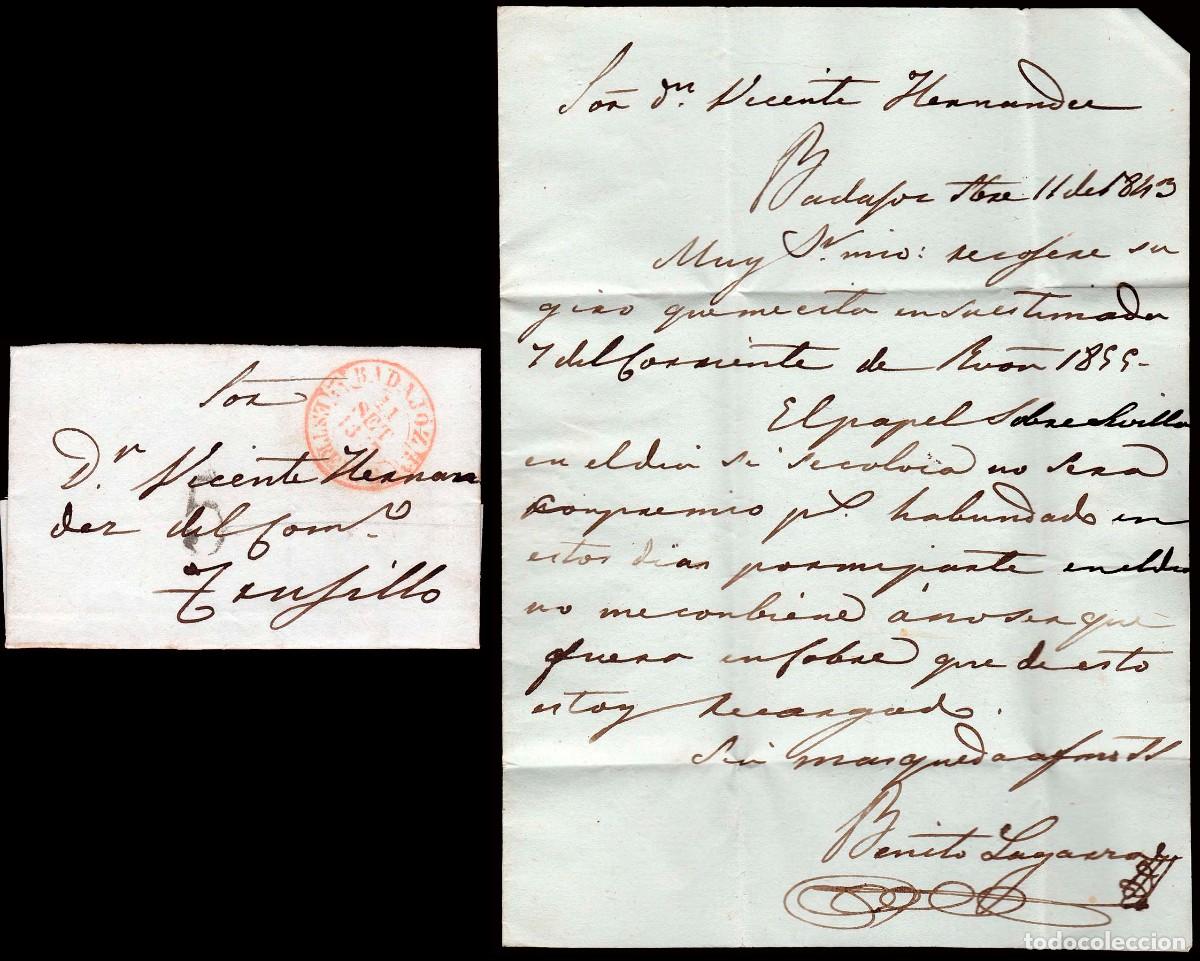 Sor
Dn. Vicente Hernan
dez del Comº.
Trusillo
BADAJOZ
11
SET
5
Sor dn. Vicente Hernandez
Badajoz 11 de 1843
Muy Sr. mio: recojere su
giro que me cita en su estimada
7 del Corriente de Rvon 1855-
El papel Sobre Sevilla
en el dia si se coloca no sera
con premio pr. habundado en
estos dias por mi parte en el dia
no me conbiene á no ser que
fuera en Cobre que de esto
estoy recargado.
Sin mas queda
Benito
todocoleccion